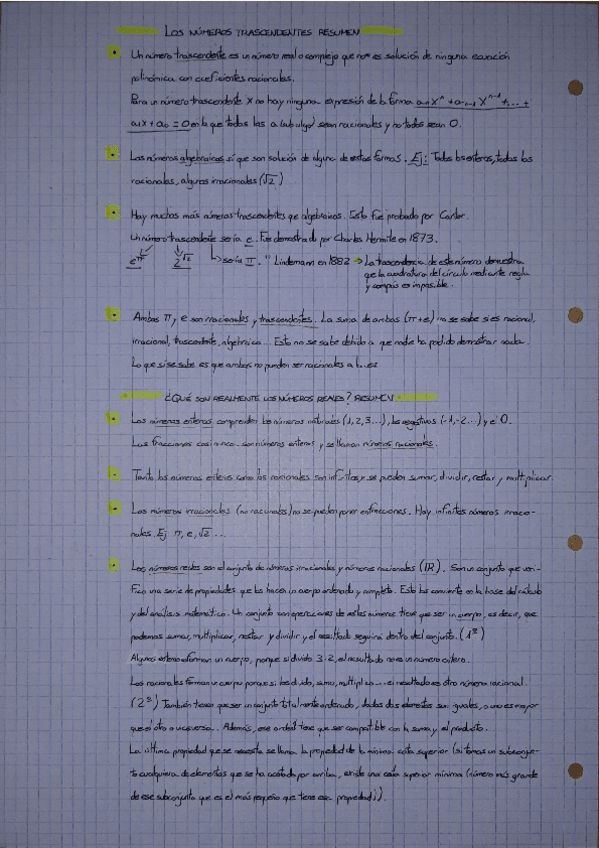 LOS NÚMEROS TRASCENDENTES RESUMEN
Un número trascendente es un número real o complejo que no es solución de ninguna ecuación
polinómica con coeficientes racionales.
Para un número trascendente x no hay ninguna expresión de la forma aₙxⁿ + aₙ₋₁xⁿ⁻¹ + ... +
a₁x + a₀ = 0 en la que todas las a (sub algo) sean racionales y no todos sean 0.
Los números algebraicos sí que son solución de alguna de estas formas. Ej: Todos los enteros, todos los
racionales, algunos irracionales (√2)
Hay muchos más números trascendentes que algebraicos. Esto fue probado por Cantor.
Un número trascendente sería e. Fue demostrado por Charles Hermite en 1873.
e^π 2^√2 sería π. " Lindemann en 1882 → La trascendencia de este número demuestra
que la cuadratura del círculo mediante regla
y compás es imposible.
Ambos π y e son irracionales y trascendentes. La suma de ambos (π+e) no se sabe si es racional,
irracional, trascendente, algebraico... Esto no se sabe debido a que nadie ha podido demostrar nada.
Lo que sí se sabe es que ambos no pueden ser racionales a la vez
¿QUÉ SON REALMENTE LOS NÚMEROS REALES? RESUMEN
Los números enteros comprenden los números naturales (1, 2, 3...), los negativos (-1, -2...) y el 0.
Las fracciones casi nunca son números enteros y se llaman números racionales.
Tanto los números enteros como los racionales son infinitos y se pueden sumar, dividir, restar y multiplicar.
Los números irracionales (no racionales) no se pueden poner en fracciones. Hay infinitos números irracio-
nales. Ej: π, e, √2 ...
Los números reales son el conjunto de números irracionales y números racionales (IR). Son un conjunto que veri-
fica una serie de propiedades que los hacen un cuerpo ordenado y completo. Esto los convierte en la base del cálculo
y del análisis matemático. Un conjunto con operaciones de estos números tiene que ser un cuerpo, es decir, que
podemos sumar, multiplicar, restar y dividir y el resultado seguirá dentro del conjunto. (1ª)
no forman un cuerpo, porque si divido 3:2, el resultado no es un número entero.
Los racionales forman un cuerpo porque si los divido, sumo, multiplico... el resultado es otro número racional.
(2ª) También tienen que ser un conjunto totalmente ordenado, dados dos elementos son iguales, o uno es mayor
que el otro o viceversa. Además, ese orden tiene que ser compatible con la suma y el producto.
La última propiedad que se necesita se llama la propiedad de la mínima cota superior (si tomas un subconjun-
to cualquiera de elementos que se ha acotado por arriba, existe una cota superior mínima (número más grande
de ese subconjunto que es el más pequeño que tiene esa propiedad)).